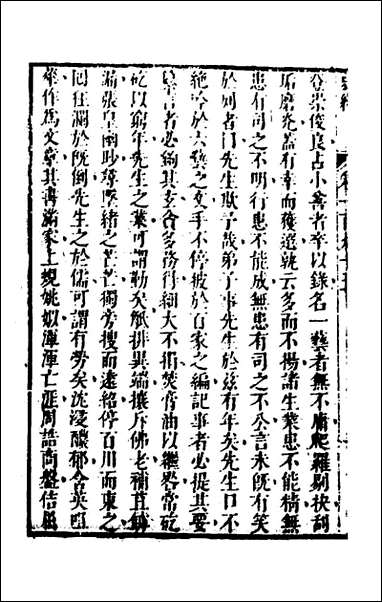 登崇俊良占小善者率以錄名一藝者無不庸爬羅剔抉刮
垢磨光蓋有幸而獲選孰云多而不揚諸生業患不能精無
患有司之不明行患不能成無患有司之不公言未既有笑
於列者曰先生欺予哉弟子事先生於茲有年矣先生口不
絶吟於六藝之文手不停披於百家之編記事者必提其要
纂言者必鉤其玄貪多務得細大不捐焚膏油以繼晷常矻
矻以窮年先生之業可謂勤矣觝排異端攘斥佛老補苴罅
漏張皇幽眇尋墜緒之茫茫獨旁搜而遠紹停百川而東之
回狂瀾於既倒先生之於儒可謂有勞矣沈浸醲郁含英咀
華作爲文章其書滿家上規姚姒渾渾亡涯周誥商盤佶屈